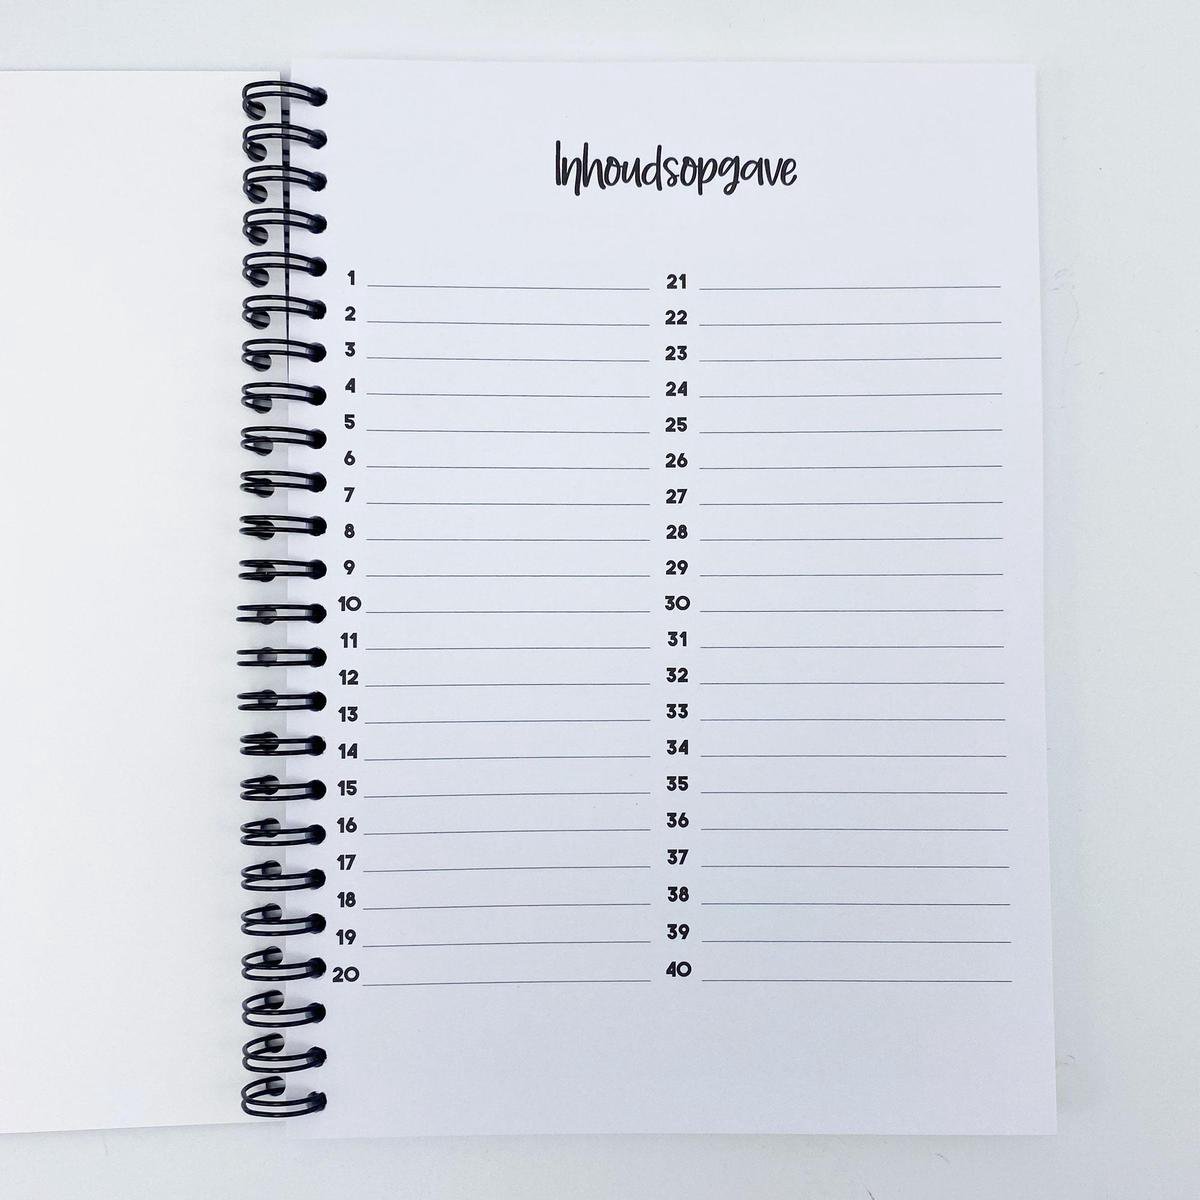 Inhoudsopgave
1
2
3
4
5
6
7
8
9
10
11
12
13
14
15
16
17
18
19
20
21
22
23
24
25
26
27
28
29
30
31
32
33
34
35
36
37
38
39
40